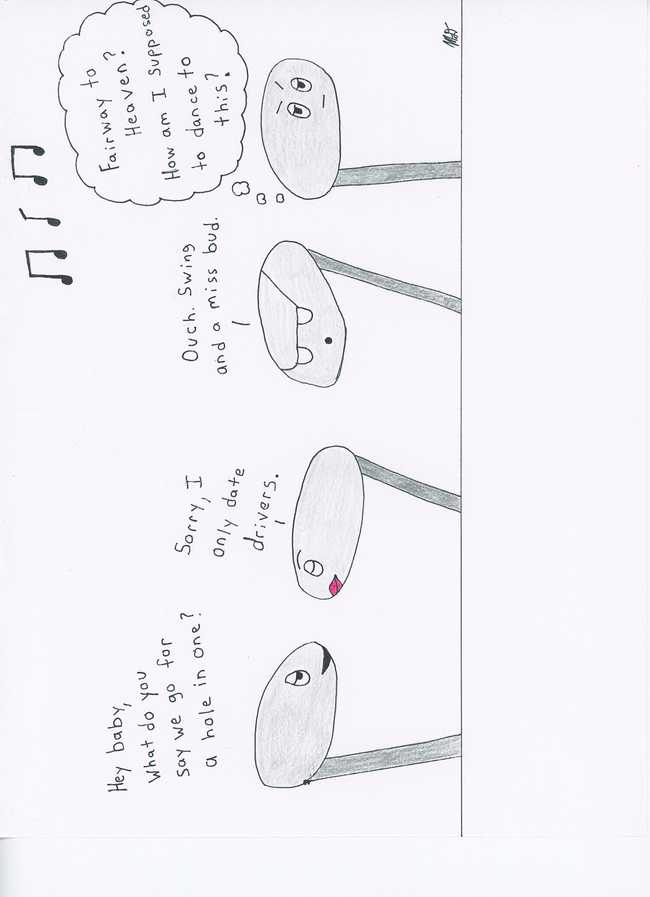 Hey baby,
What do you
say we go for
a hole in one?
Sorry, I
only date
drivers.
Ouch. Swing
and a miss bud.
Fairway to
Heaven?
How am I supposed
to dance to
this?